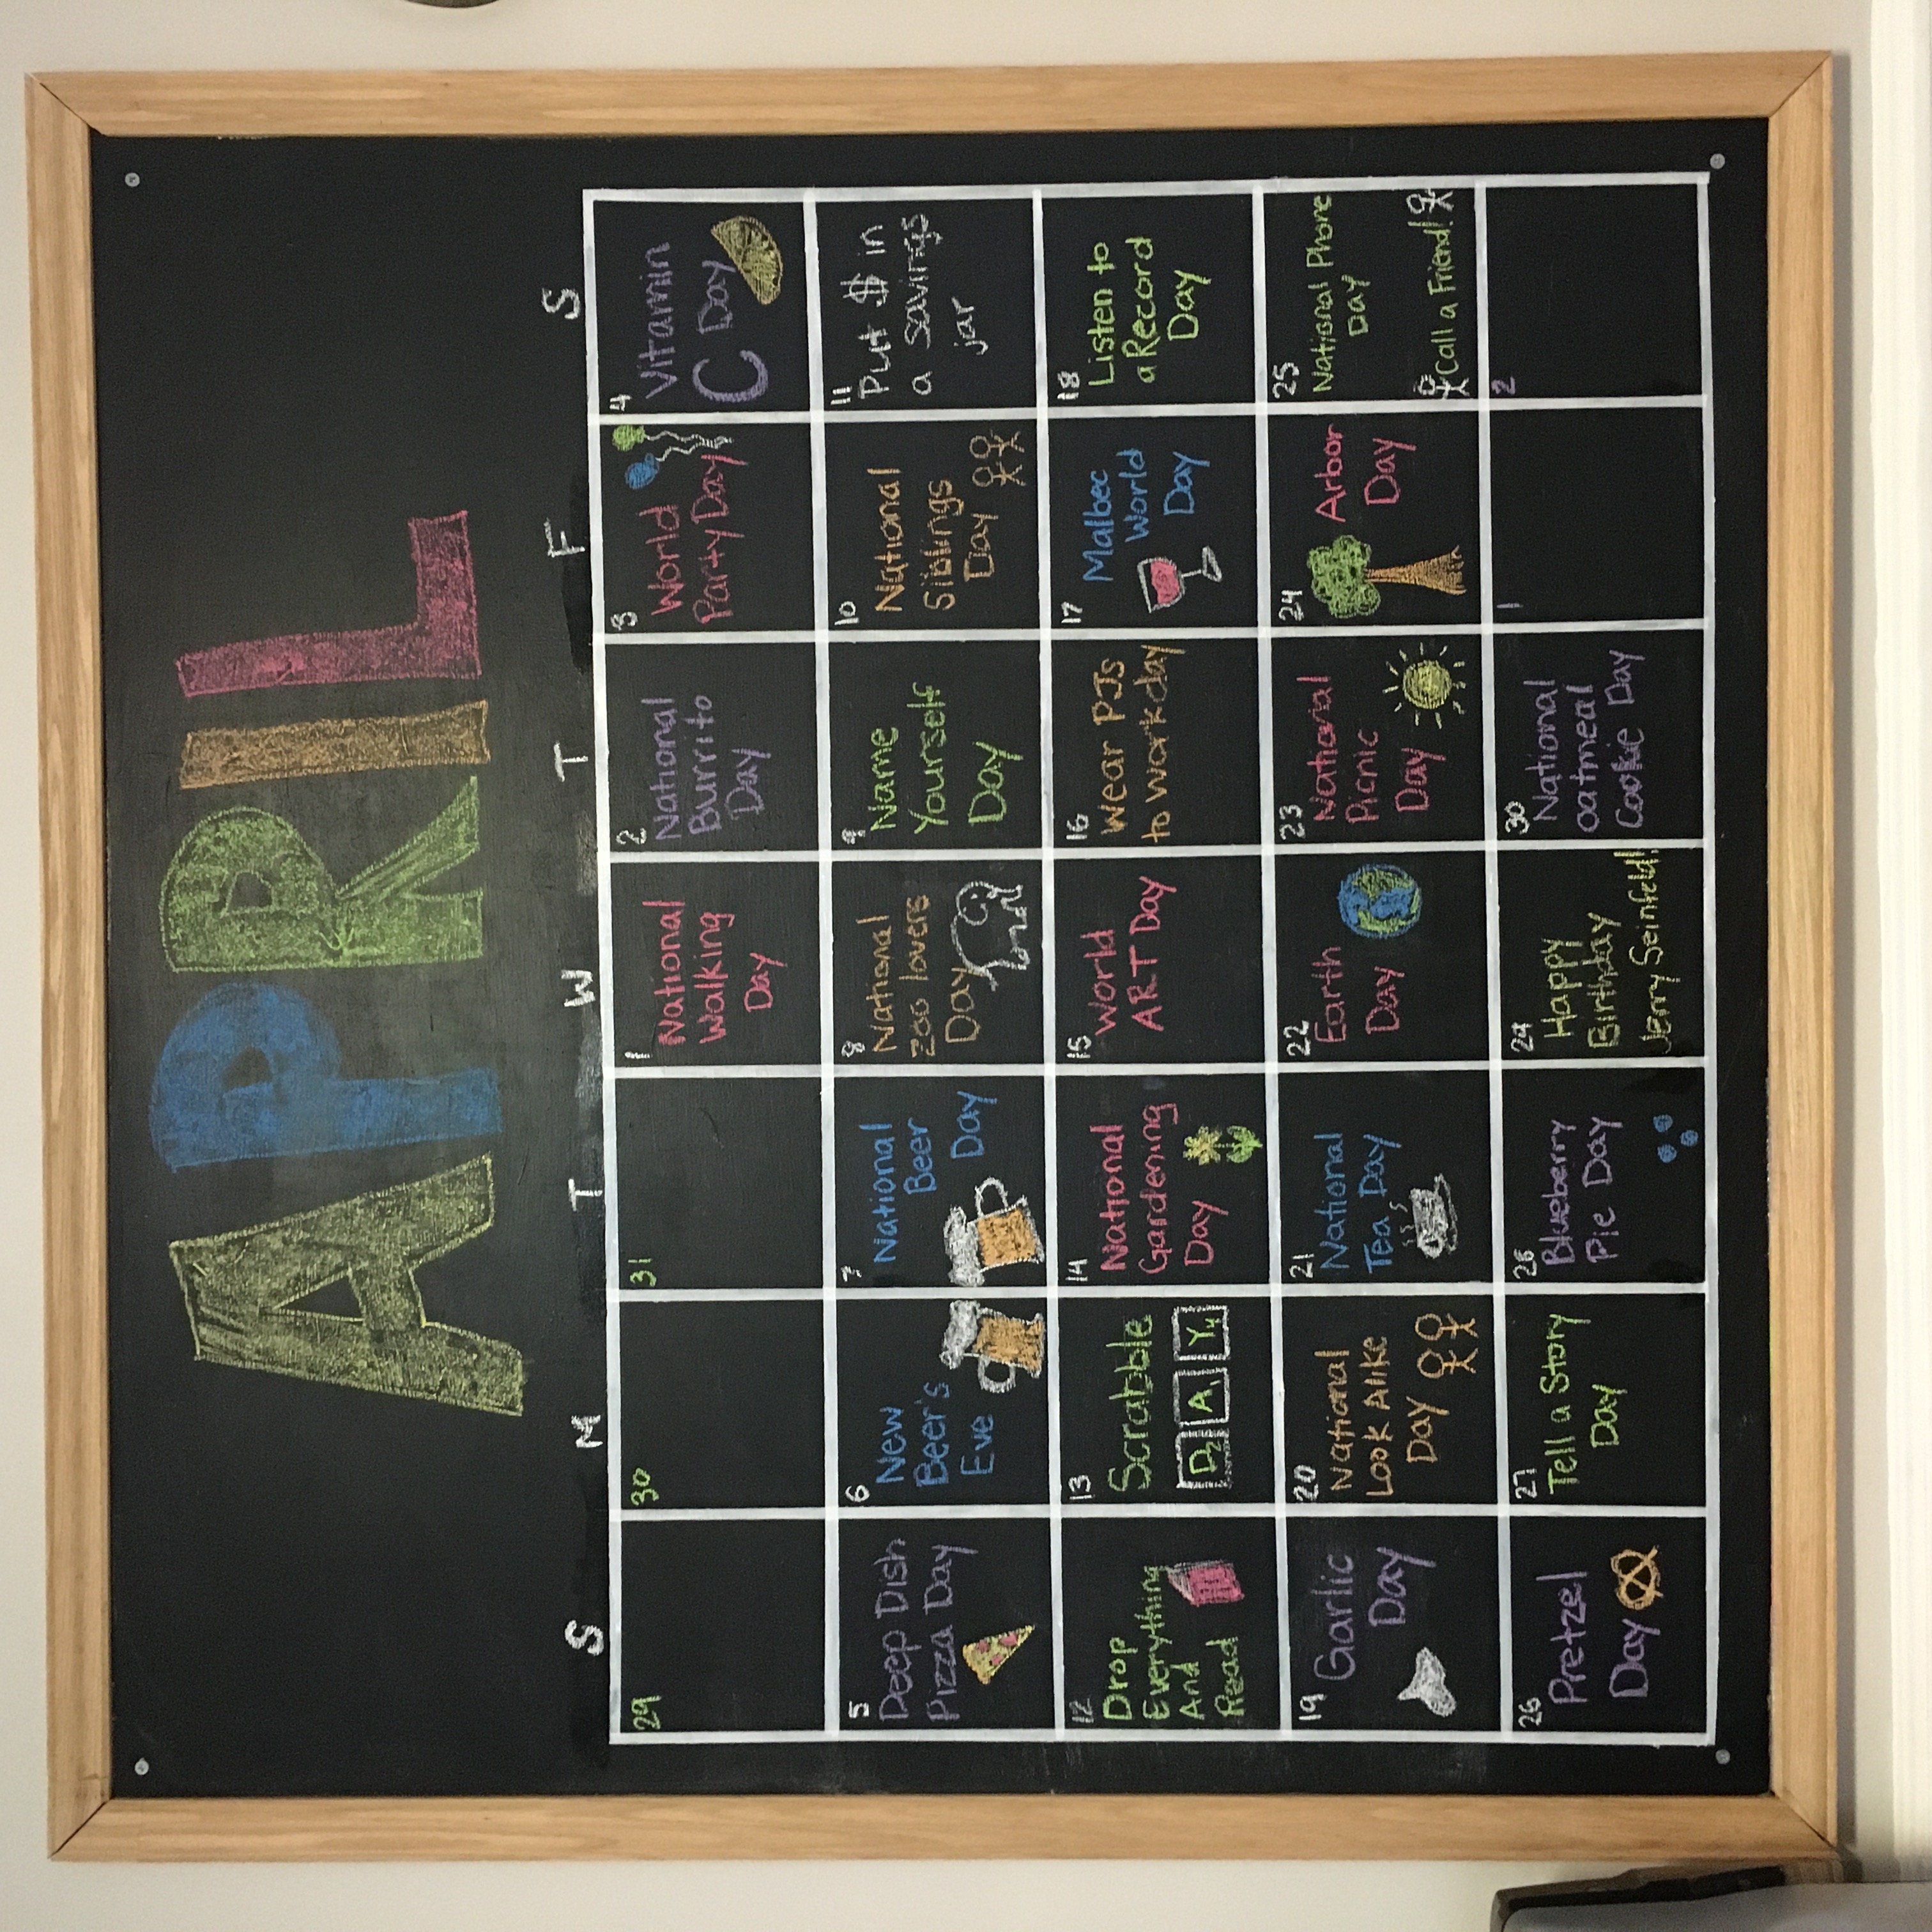 APRIL
S M T W T F S
29
30
31
1
National
Walking
Day
2
National
Burrito
Day
3
World
Party Day
4
Vitamin
C Day
5
Deep Dish
Pizza Day
6
New
Beer's
Eve
7
National
Beer
Day
8
National
zoo lovers
Day
9
Name
Yourself
Day
10
National
Siblings
Day
11
Put $ in
a savings
jar
12
Drop
Everything
And
Read
13
Scrabble
D2 A1 Y4
14
National
Gardening
Day
15
World
ART Day
16
Wear PJs
to work day
17
Malbec
World
Day
18
Listen to
a Record
Day
19
Garlic
Day
20
National
Look Alike
Day
21
National
Tea Day
22
Earth
Day
23
National
Picnic
Day
24
Arbor
Day
25
National Phone
Day
Call a Friend!
26
Pretzel
Day
27
Tell a Story
Day
28
Blueberry
Pie Day
29
Happy
Birthday
Jerry Seinfeld!
30
National
oatmeal
Cookie Day
1
2